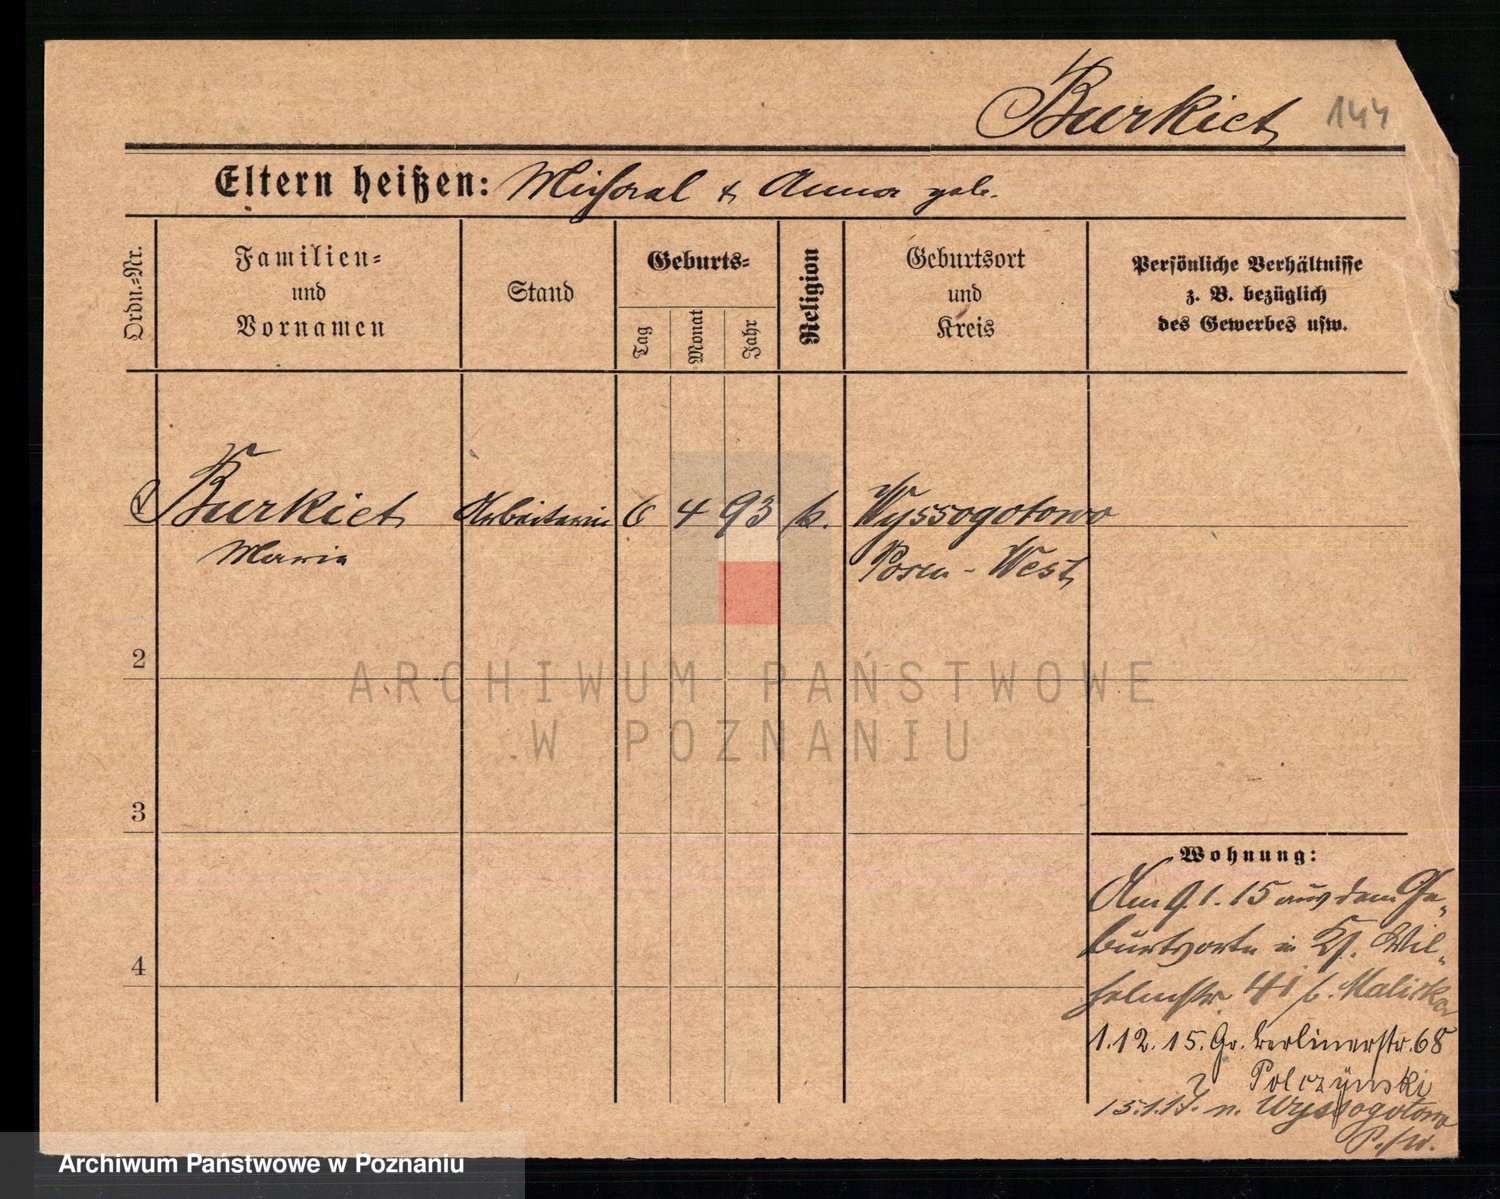 Burkict 144
Eltern heißen: Michael & Anna geb.
Ordn.-Nr.
Familien-
und
Vornamen
Stand
Geburts-
Tag
Monat
Jahr
Religion
Geburtsort
und
Kreis
Persönliche Verhältnisse
z. B. bezüglich
des Gewerbes usw.
Burkict Arbeiterin 6 4 93 k. Wyssogotowo
Maria Posen - West
2
3
4
ARCHIWUM PAŃSTWOWE
W POZNANIU
Wohnung:
Am 9.1.15 aus dem Ge-
burtsorte in Wil-
helmstr. 41 b. Maliska
1.12.15. Gr. Berlinerstr. 68
Polczynski
15.1.17. n. Wyssogotowo
P./W.
Archiwum Państwowe w Poznaniu